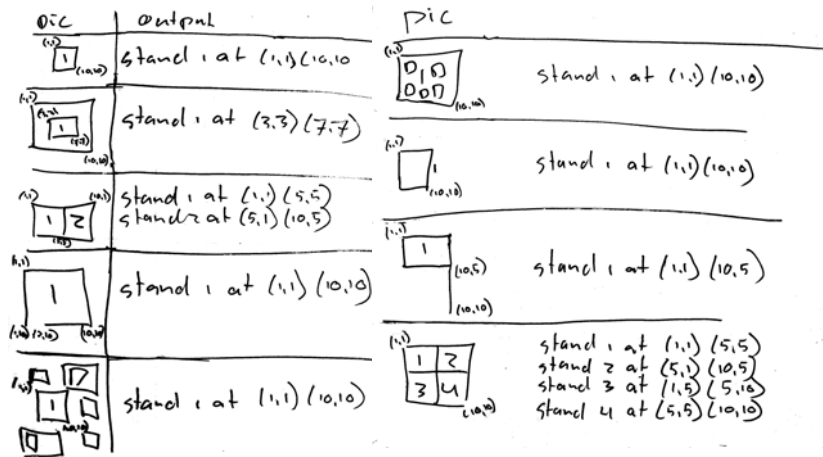 pic output
(1,1)
1
(10,10)
stand 1 at (1,1) (10,10
(1,1)
(3,3)
1
(7,7)
(10,10)
stand 1 at (3,3) (7,7)
(1,1) (10,1)
1 2
(5,5)
stand 1 at (1,1) (5,5)
stand 2 at (5,1) (10,5)
(1,1)
1
(1,10) (2,10) (10,10)
stand 1 at (1,1) (10,10)
(1,1)
1
(10,10)
stand 1 at (1,1) (10,10)
pic
(1,1)
1
(10,10)
stand 1 at (1,1) (10,10)
(1,1)
1
(10,10)
stand 1 at (1,1) (10,10)
(1,1)
1
(10,5)
(10,10)
stand 1 at (1,1) (10,5)
(1,1)
1 2
3 4
(10,10)
stand 1 at (1,1) (5,5)
stand 2 at (5,1) (10,5)
stand 3 at (1,5) (5,10)
stand 4 at (5,5) (10,10)